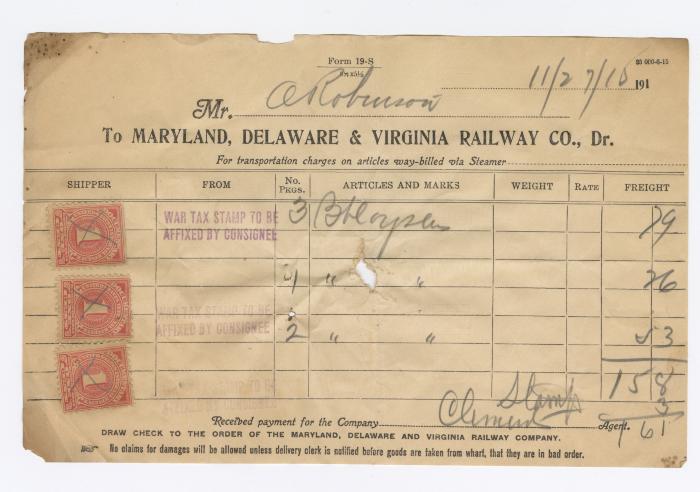 Form 19-S
8½ x5½
35 000-6-15
11/27/15 191
Mr. O Robinson
To MARYLAND, DELAWARE & VIRGINIA RAILWAY CO., Dr.
For transportation charges on articles way-billed via Steamer
SHIPPER FROM No. PKGS. ARTICLES AND MARKS WEIGHT RATE FREIGHT
WAR TAX STAMP TO BE
AFFIXED BY CONSIGNEE
3 Bbl oysters 79
4 " " 26
WAR TAX STAMP TO BE
AFFIXED BY CONSIGNEE
2 " " 53
1 58
WAR TAX STAMP TO BE
AFFIXED BY CONSIGNEE
Stamps 3
Received payment for the Company Agent. 1 61
DRAW CHECK TO THE ORDER OF THE MARYLAND, DELAWARE AND VIRGINIA RAILWAY COMPANY.
No claims for damages will be allowed unless delivery clerk is notified before goods are taken from wharf, that they are in bad order.